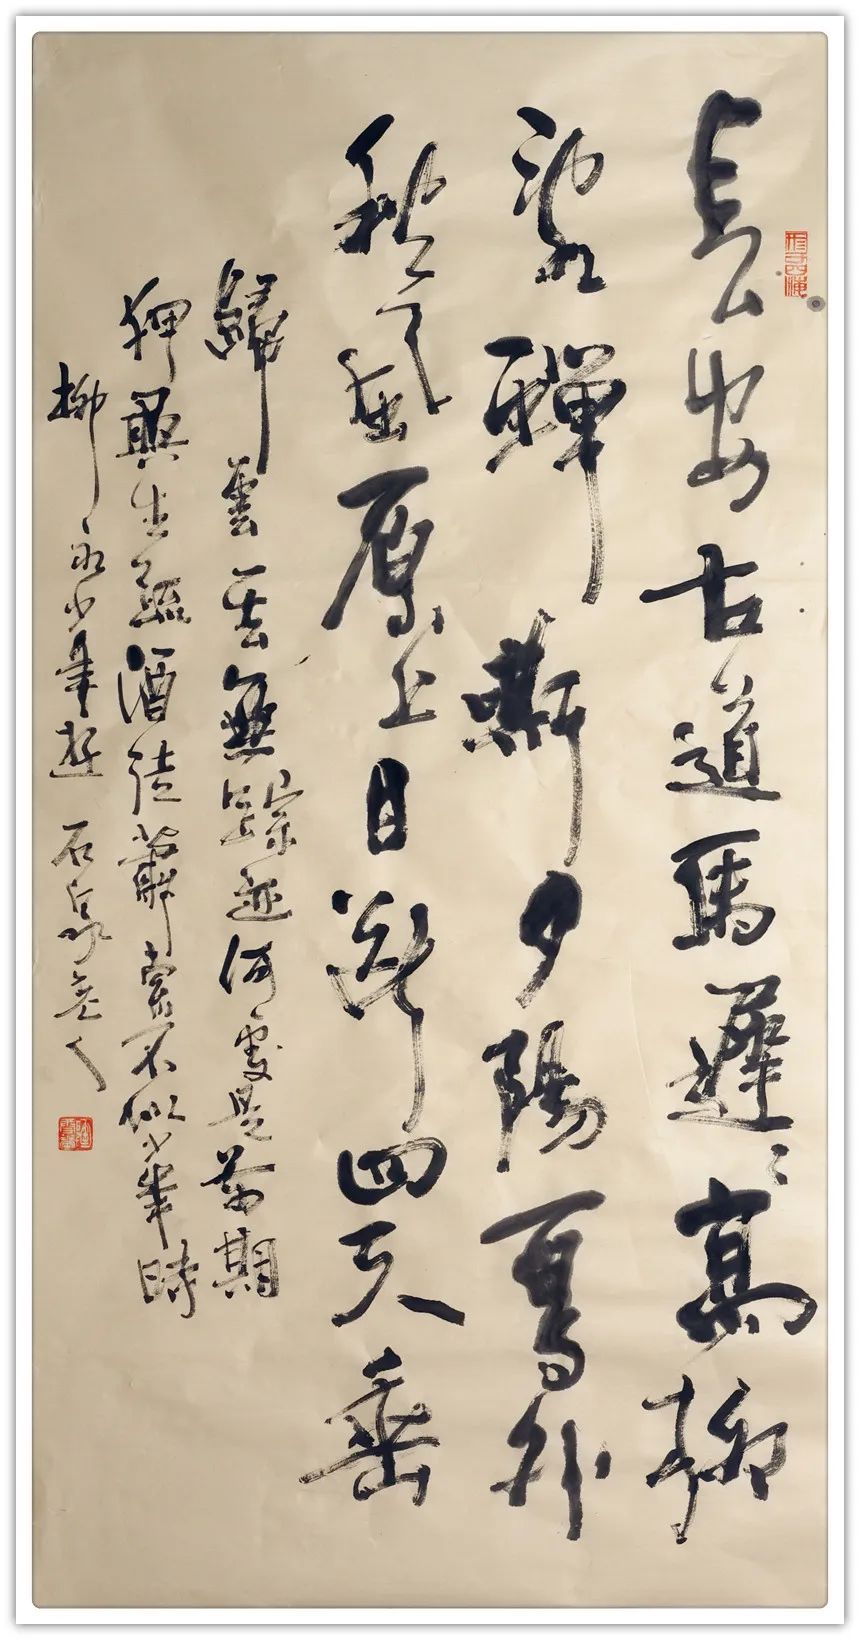 長安古道馬遲〻高柳
亂蟬嘶夕陽鳥外
秋風原上目斷四天垂
歸雲一去無蹤迹何處是前期
狎興生疏酒徒蕭索不似少年時
柳永少年遊 石泉人